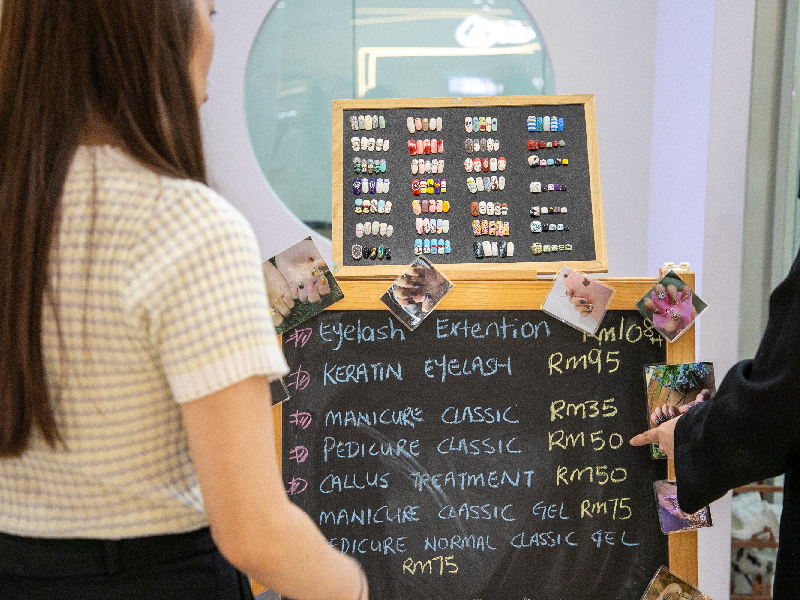 Eyelash Extention Rm108
KERATIN EYELASH Rm95
MANICURE CLASSIC Rm35
PEDICURE CLASSIC Rm50
CALLUS TREATMENT Rm50
MANICURE CLASSIC GEL Rm75
EDICURE NORMAL CLASSIC GEL
Rm75